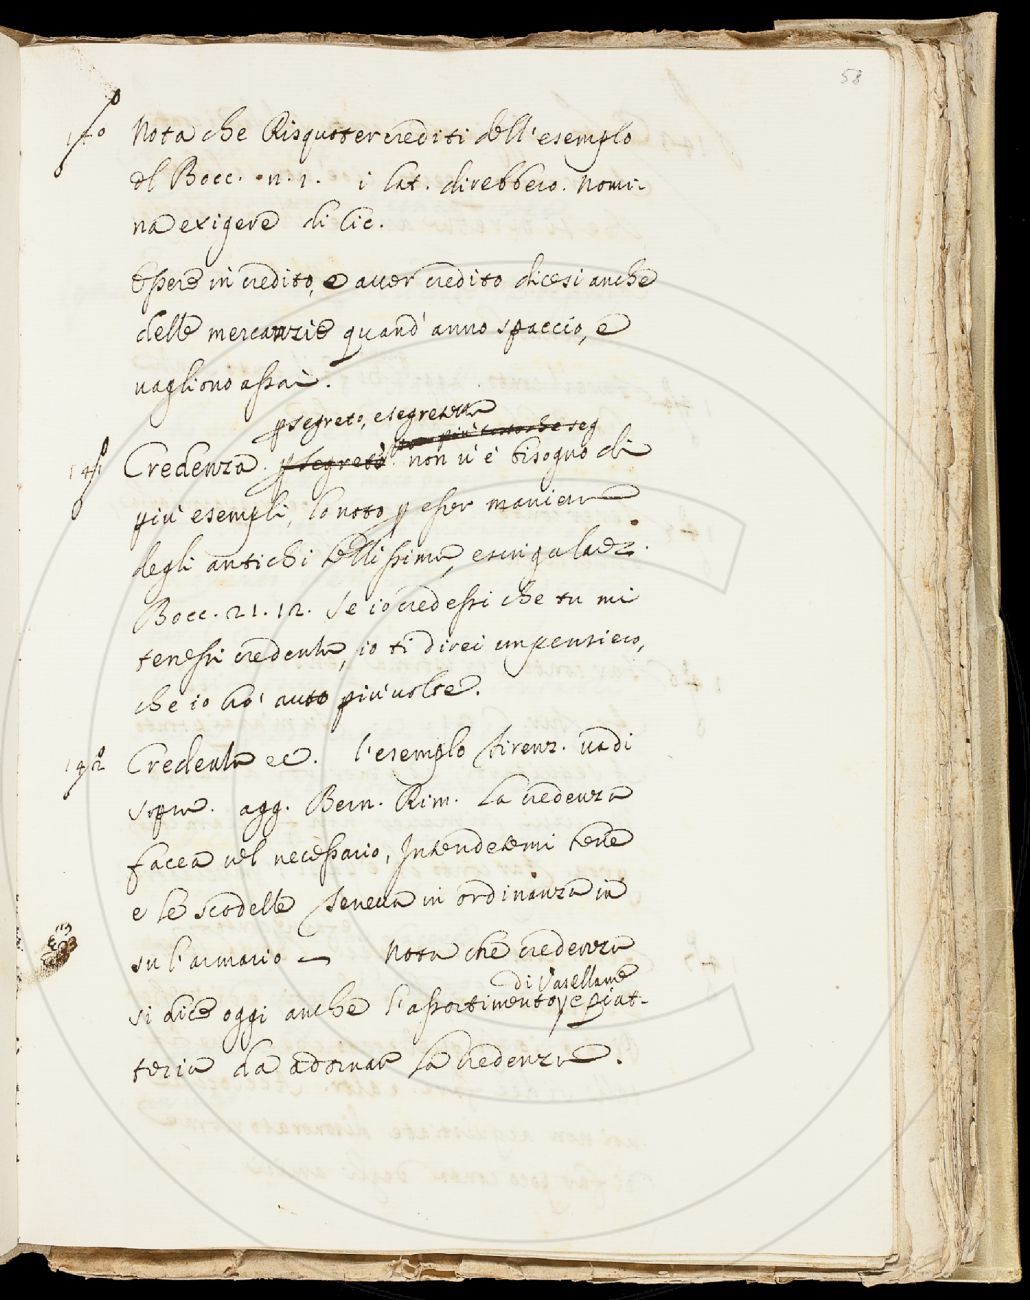 58
140 Nota che Risquoter crediti dell'esemplo
del Bocc. n. 1. i lat. direbbero. Nomi-
na exigere di Cic.
Essere in credito, e aver credito dicesi anche
delle mercanzie quand'anno spaccio, e
vagliono assai.
p segreto, e segretezza
141 Credenza. p segreto non v'è bisogno di
più esempli, lo noto p esser maniera
degli antichi bellissima, e singulare.
Bocc. 21. 12. Se io credessi che tu mi
tenessi credenza, io ti direi un pensiero,
che io hò avuto più volte.
142 Credenza ec. l'esemplo Firenz. va di
sopra. agg. Bern. Rim. La credenza
facea nel necessario, Intendetemi bene
e le scodelle Teneva in ordinanza in
su l'armario — Nota che credenza
di Vasellame
si dice oggi anche l'assortimento, e piat-
teria da adornar la credenza.